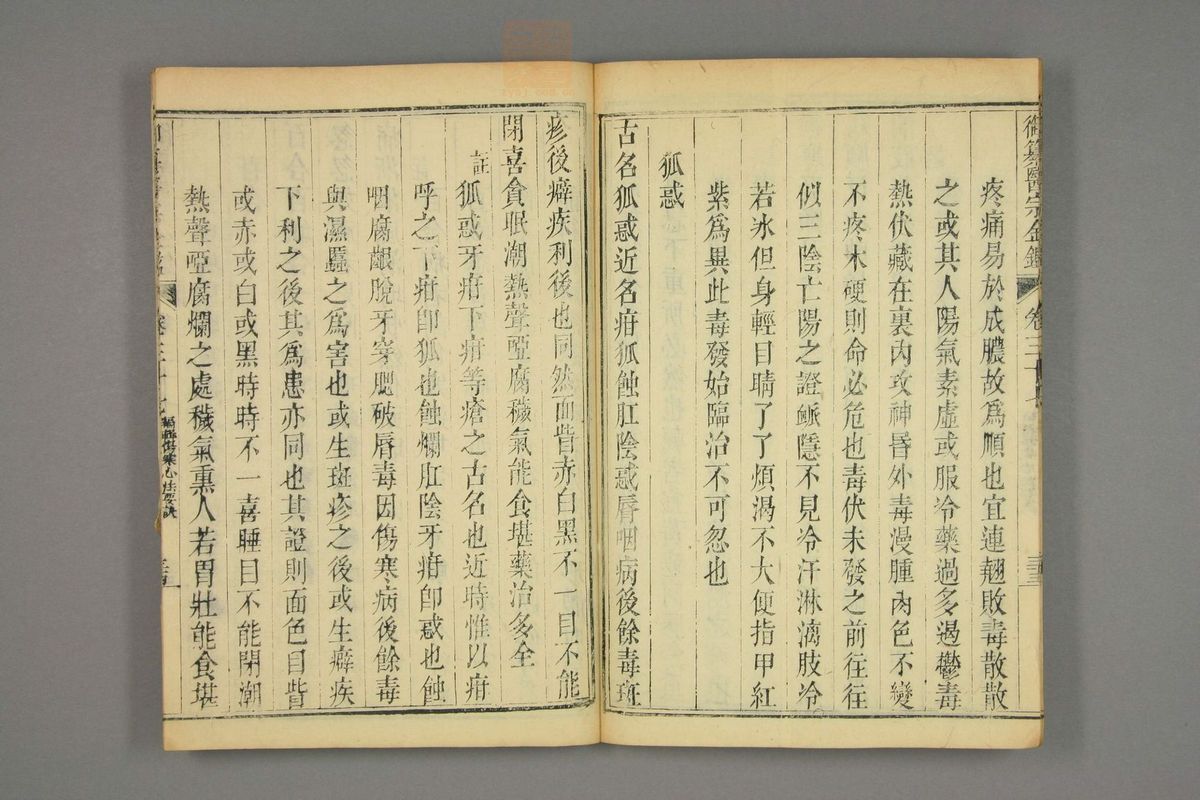 御纂醫宗金鑑
卷三十七
疼痛易於成膿故爲順也宜連翹敗毒散散
之或其人陽氣素虛或服冷藥過多遏鬱毒
熱伏藏在裏內攻神昏外毒漫腫肉色不變
不疼木硬則命必危也毒伏未發之前往往
似三陰亡陽之證脈隱不見冷汗淋漓肢冷
若冰但身輕目睛了了煩渴不大便指甲紅
紫爲異此毒發始臨治不可忽也
狐惑
古名狐惑近名疳狐蝕肛陰惑唇咽病後餘毒斑
疹後癖疾利後也同然面眥赤白黑不一目不能
閉喜貪眠潮熱聲啞腐穢氣能食堪藥治多全
註
狐惑牙疳下疳等瘡之古名也近時惟以疳
呼之下疳卽狐也蝕爛肛陰牙疳卽惑也蝕
咽腐齦脫牙穿腮破唇毒因傷寒病後餘毒
與濕䘌之爲害也或生斑疹之後或生癖疾
下利之後其爲患亦同也其證則面色目眥
或赤或白或黑時時不一喜睡目不能閉潮
熱聲啞腐爛之處穢氣熏人若胃壯能食堪